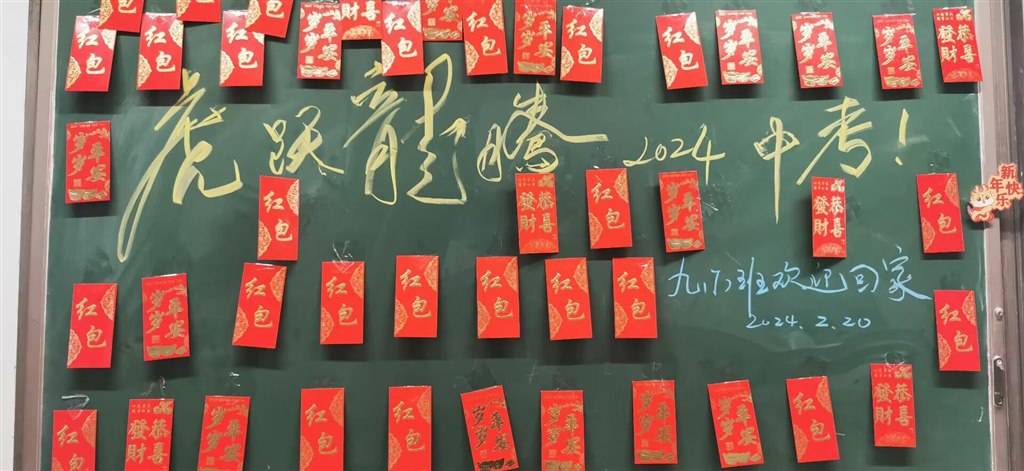 红包
红包
红包
岁岁平安
恭喜
發財
红包
平安
红包
岁岁平安
红包
红包
岁岁平安
岁岁平安
岁岁平安
恭喜發財
虎跃龍騰 2024 中考!
岁岁平安
红包
恭喜發財
红包
岁岁平安
恭喜發財
红包
新年快乐
九(7)班欢迎回家
2024.2.20
红包
岁岁平安
红包
红包
红包
红包
红包
红包
红包
红包
恭喜發財
岁岁平安
红包
红包
岁岁平安
岁岁平安
岁岁平安
岁岁平安
红包
恭喜發財